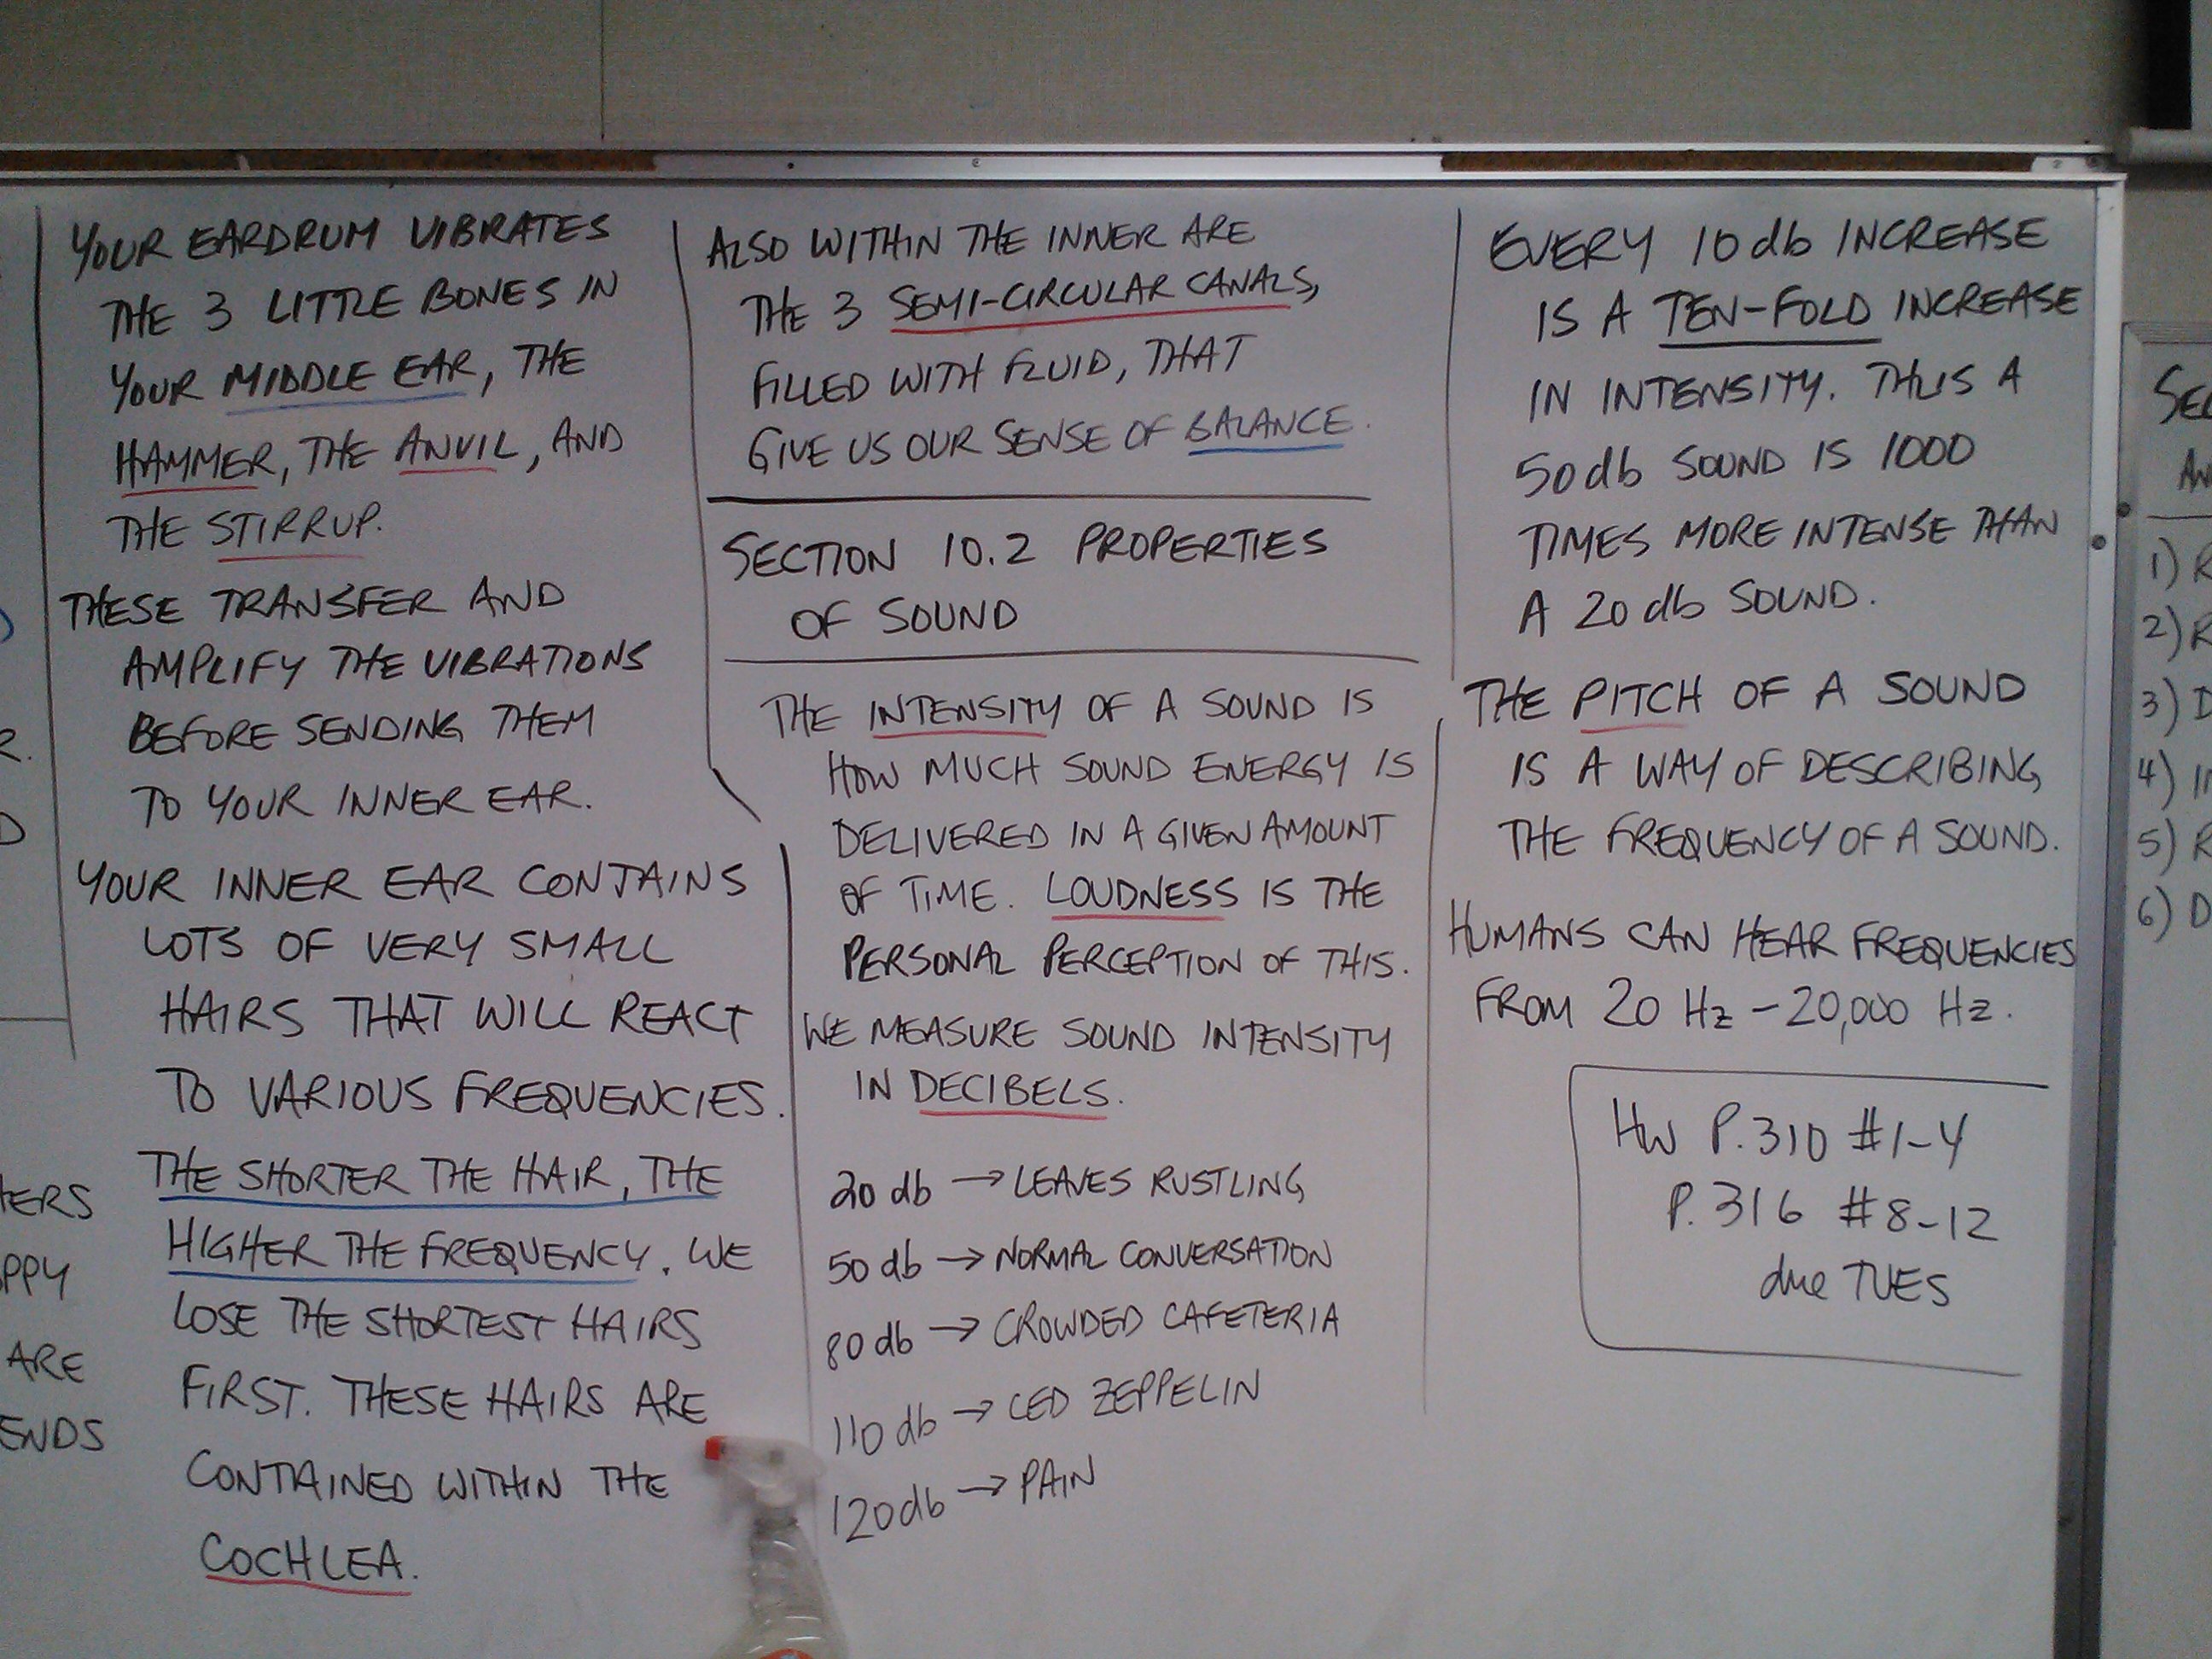 YOUR EARDRUM VIBRATES
THE 3 LITTLE BONES IN
YOUR MIDDLE EAR, THE
HAMMER, THE ANVIL, AND
THE STIRRUP.
THESE TRANSFER AND
AMPLIFY THE VIBRATIONS
BEFORE SENDING THEM
TO YOUR INNER EAR.
YOUR INNER EAR CONTAINS
LOTS OF VERY SMALL
HAIRS THAT WILL REACT
TO VARIOUS FREQUENCIES.
THE SHORTER THE HAIR, THE
HIGHER THE FREQUENCY. WE
LOSE THE SHORTEST HAIRS
FIRST. THESE HAIRS ARE
CONTAINED WITHIN THE
COCHLEA.
ALSO WITHIN THE INNER ARE
THE 3 SEMI-CIRCULAR CANALS,
FILLED WITH FLUID, THAT
GIVE US OUR SENSE OF BALANCE.
SECTION 10.2 PROPERTIES
OF SOUND
THE INTENSITY OF A SOUND IS
HOW MUCH SOUND ENERGY IS
DELIVERED IN A GIVEN AMOUNT
OF TIME. LOUDNESS IS THE
PERSONAL PERCEPTION OF THIS.
WE MEASURE SOUND INTENSITY
IN DECIBELS.
20 db → LEAVES RUSTLING
50 db → NORMAL CONVERSATION
80 db → CROWDED CAFETERIA
110 db → LED ZEPPELIN
120 db → PAIN
EVERY 10 db INCREASE
IS A TEN-FOLD INCREASE
IN INTENSITY. THUS A
50 db SOUND IS 1000
TIMES MORE INTENSE THAN
A 20 db SOUND.
THE PITCH OF A SOUND
IS A WAY OF DESCRIBING
THE FREQUENCY OF A SOUND.
HUMANS CAN HEAR FREQUENCIES
FROM 20 Hz - 20,000 Hz.
HW P. 310 #1-4
P. 316 #8-12
due TUES
ARE
1)
2)
3)
4)
5)
6)